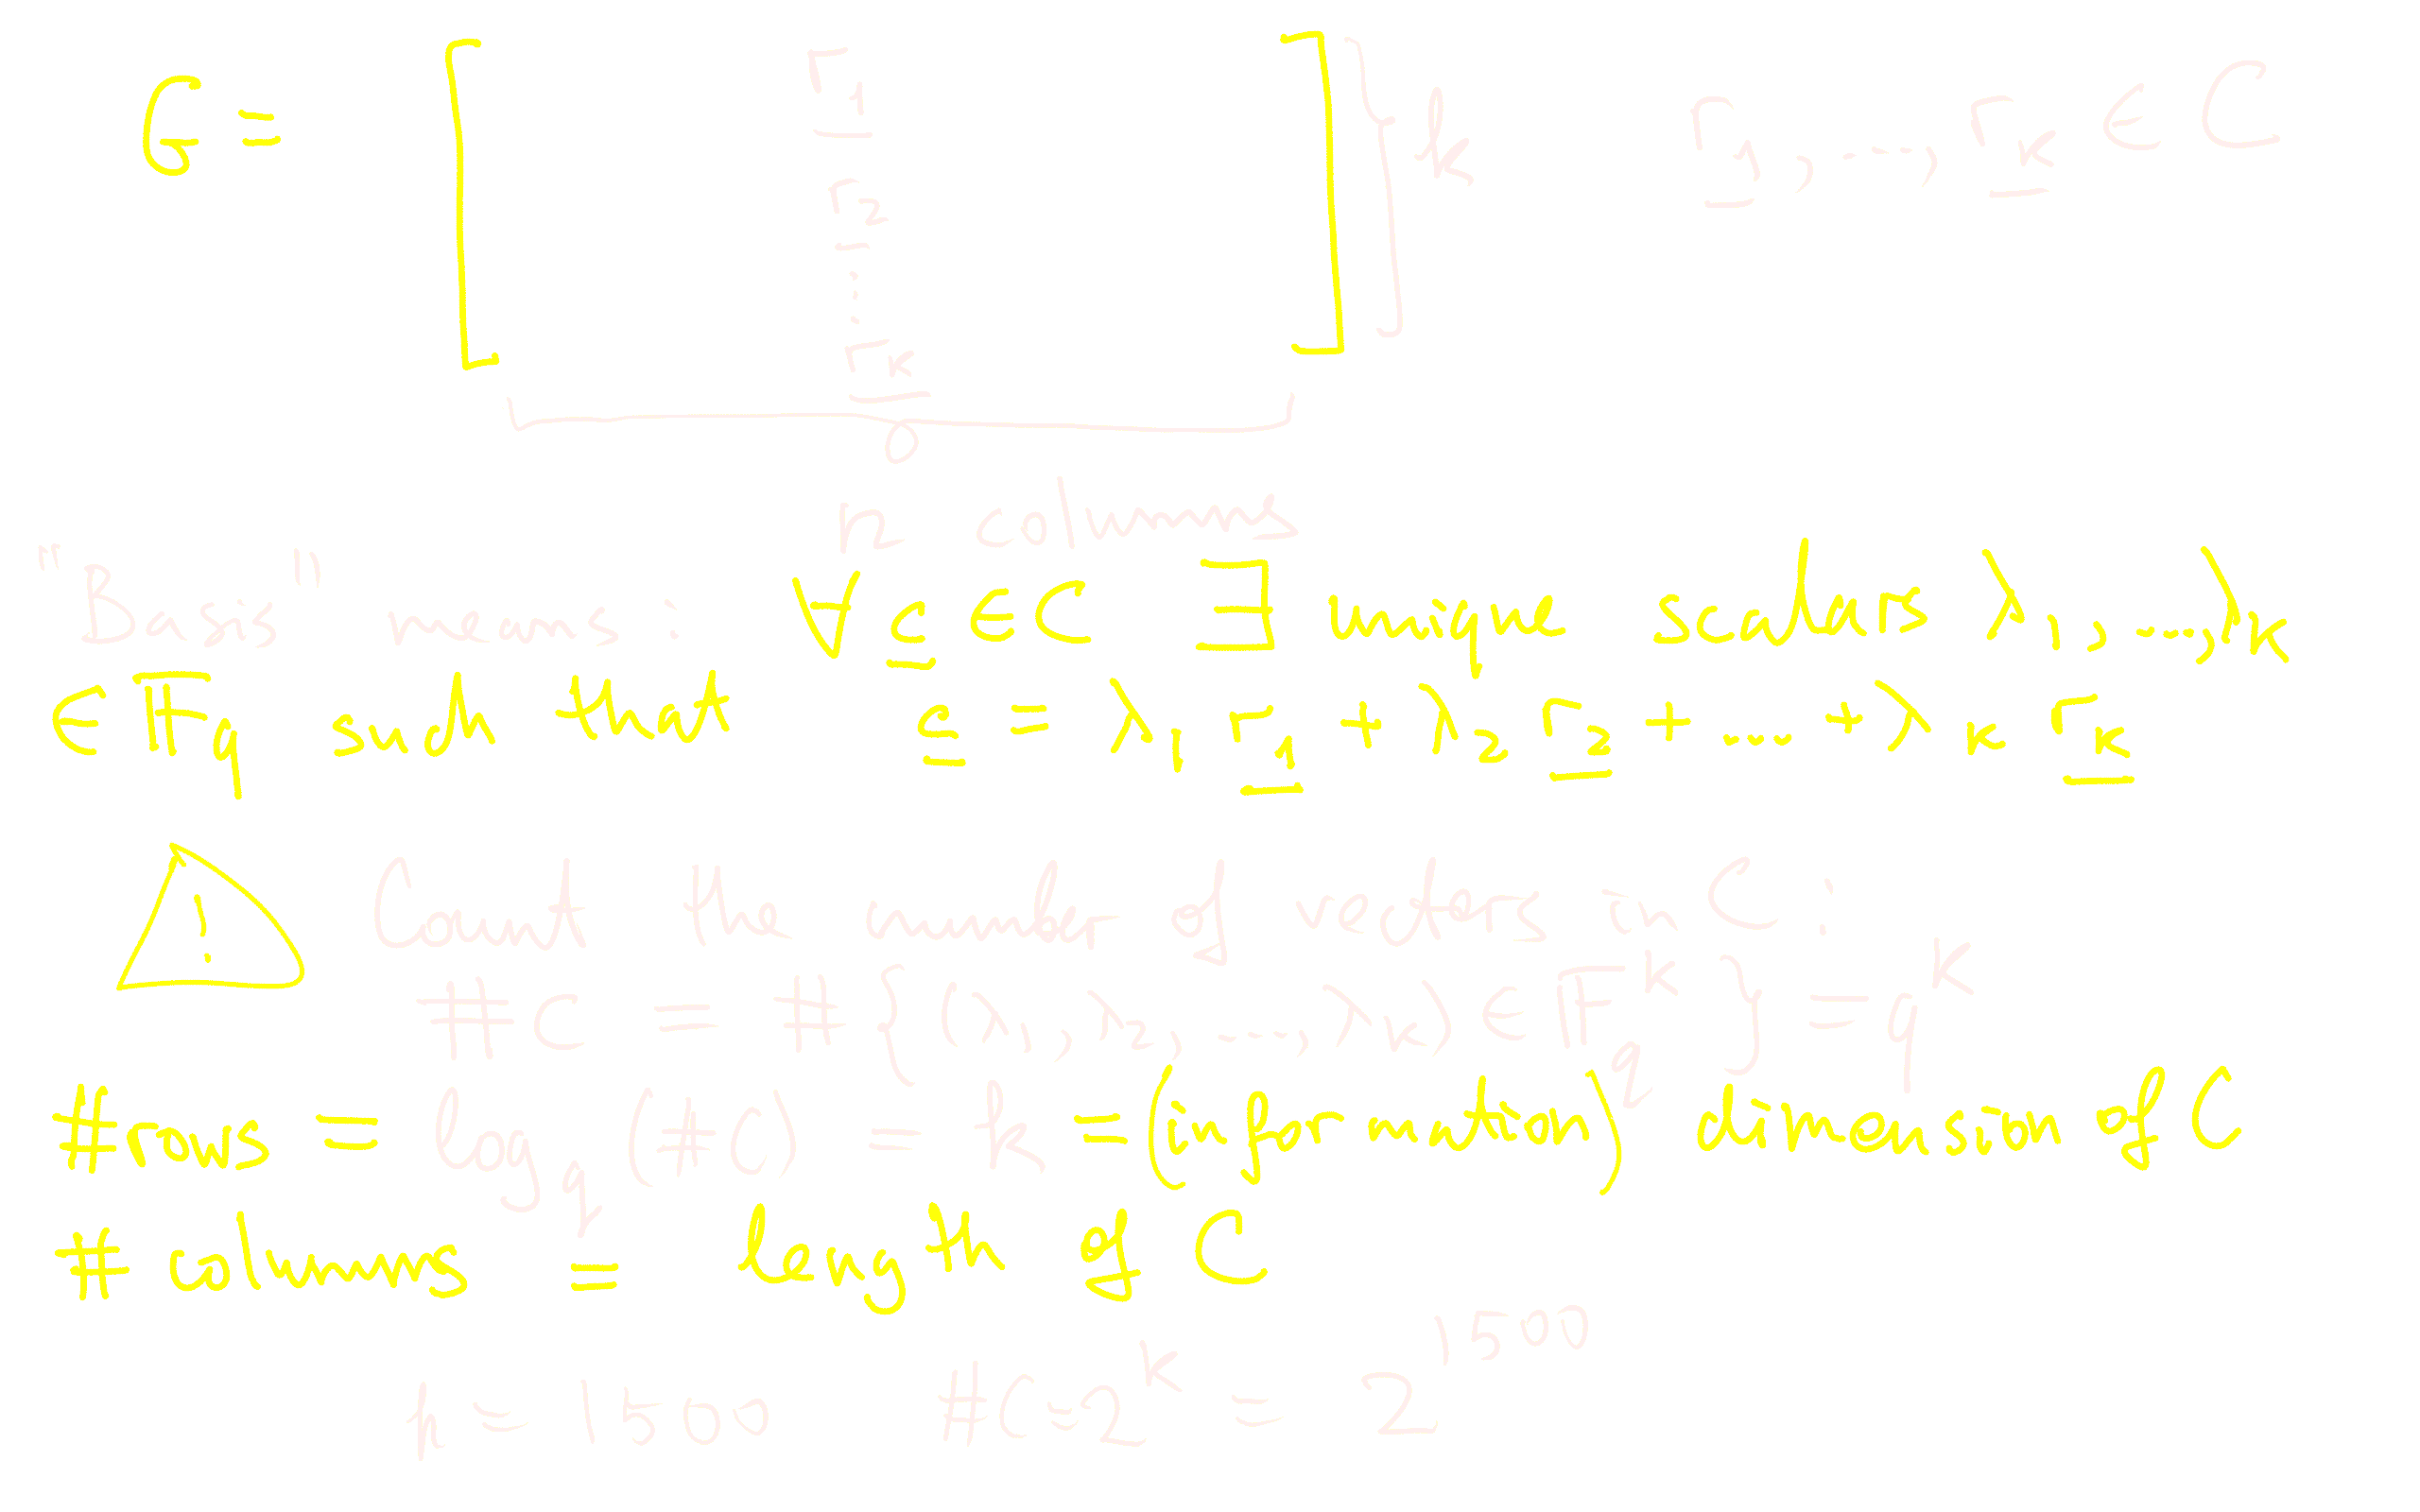 G = [ r1 ] } k r1, ..., rk ∈ C
r2
⋮
rk
n columns
"Basis" means: ∀ c ∈ C ∃ unique scalars λ1, ..., λk
∈ Fq such that c = λ1 r1 + λ2 r2 + ... + λk rk
! Count the number of vectors in C:
#C = #{(λ1, λ2, ..., λk) ∈ F_q^k} = q^k
#rows = log_q (#C) = k = (information) dimension of C
# columns = length of C
n = 1500 #C = 2^k = 2^1500